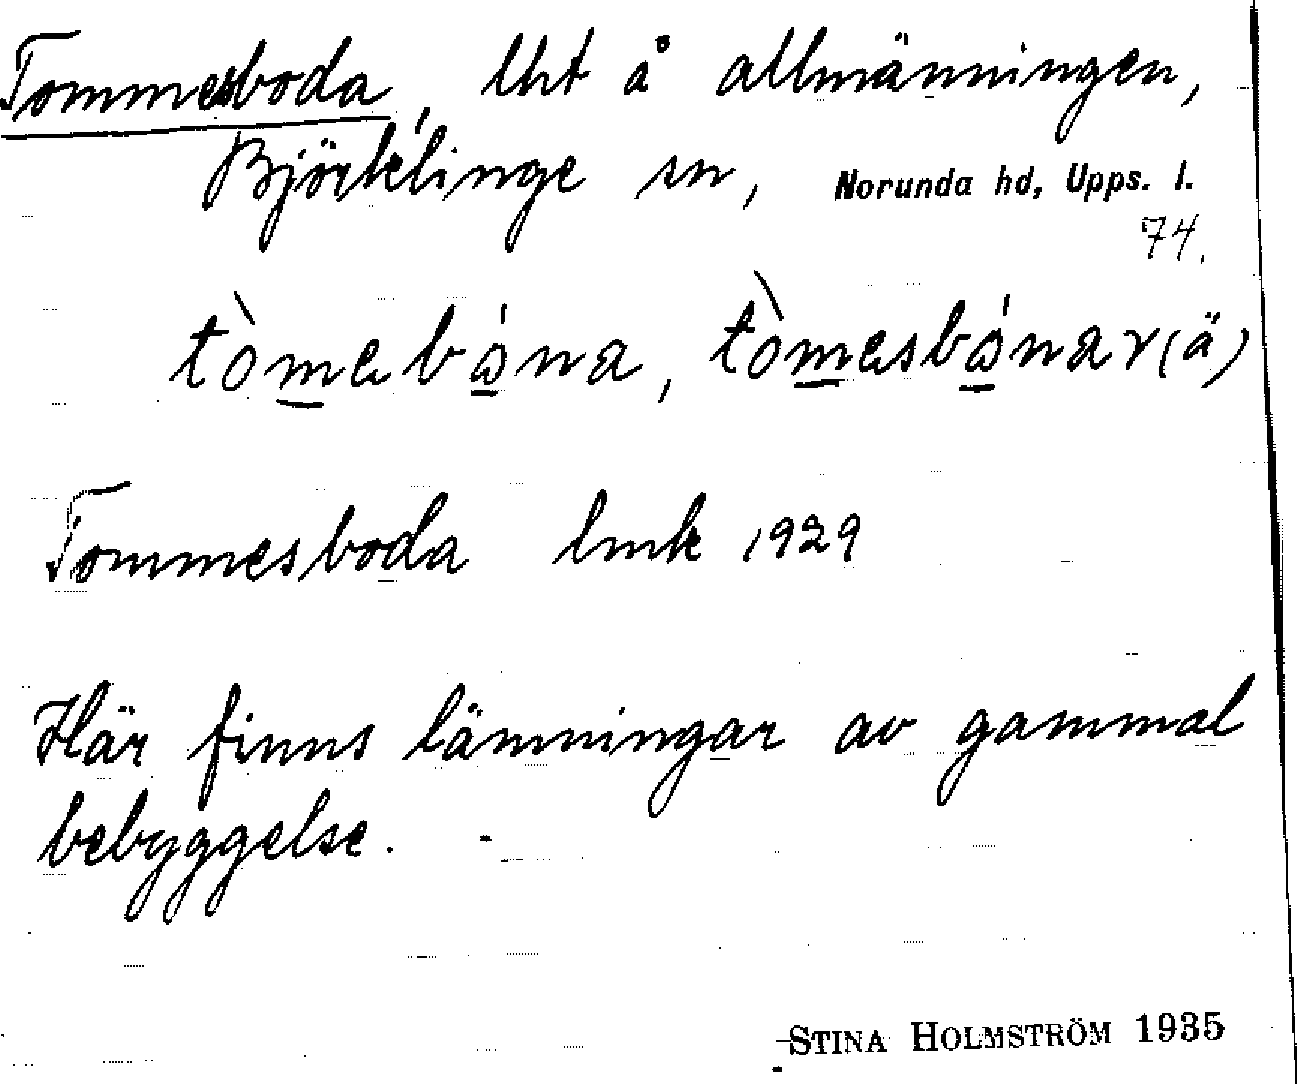 Tommesboda, lht å allmänningen,
Björklinge sn, Norunda hd, Upps. l.
74.
tòmebó̱na, tòmesbó̱nar (ä)
Tommesboda lmk 1929
Här finns lämningar av gammal
bebyggelse. -
STINA HOLMSTRÖM 1935